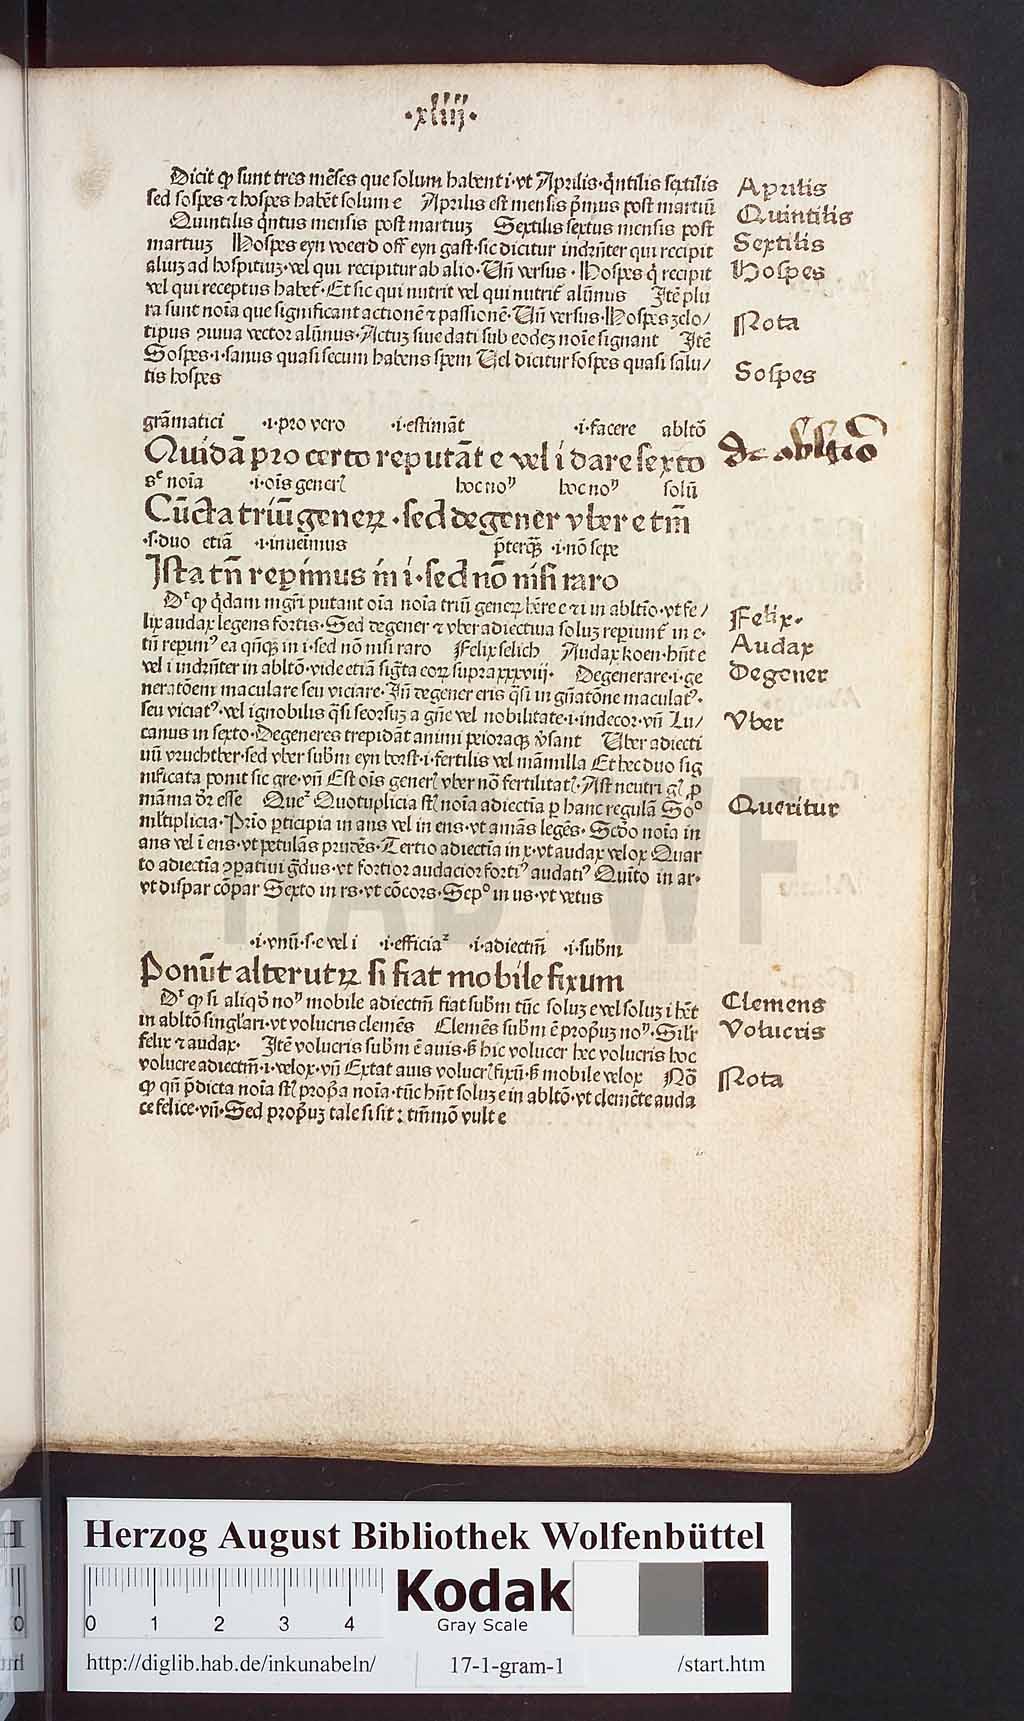 ·xliiij·
Dicit ꝙ sunt tres mēses que solum habent i·vt Aprilis·q̄ntilis sextilis
sed sospes ⁊ hospes habēt solum e Aprilis est mensis p̄mus post martiū
Quintilis q̄ntus mensis post martiuꝫ Sextilis sextus mensis post
martiuꝫ Hospes eyn weerd off eyn gast·sic dicitur indrn̄ter qui recipit
aliuꝫ ad hospitiuꝫ·vel qui recipitur ab alio·Un̄ versus·Hospes q̄ recipit
vel qui receptus habet̄·Et sic qui nutrit vel qui nutrit̄ alūnus Itē plu
ra sunt noīa que significant actionē ⁊ passionē·Un̄ versus·Hospes zelo/
tipus ꝯuiua vector alūnus·Actuꝫ siue dati sub eodeꝫ noīe signant Itē
Sospes·i·sanus quasi secum habens spem Uel dicitur sospes quasi salu/
tis hospes
Aprilis
Quintilis
Sextilis
Hospes
Nota
Sospes
grāmatici ·i·pro vero ·i·estimāt ·i·facere abltō
Quidā pro certo reputāt e vel i dare sexto
de abltō
noīa ·i·oīs generꝭ hoc noꝰ hoc noꝰ solū
Cūcta triū generꝝ·sed degener vber e tm̄
·s·duo etiā ·i·inuenimus p̄terqꝫ ·i·nō sepe
Ista tn̄ reperimus in i·sed nō nisi raro
Dꝛ ꝙ q̄dam mgr̄i putant oīa noīa triū generꝝ hr̄e e ⁊ i in abltīo·vt fe/
lix audax legens fortis·Sed degener ⁊ vber adiectiua soluꝫ reperiunt̄ in e·
tn̄ reperimꝰ ea qn̄qꝫ in i·sed nō nisi raro Felix selich Audax koen·hn̄t e
vel i indrn̄ter in abltō·vide etiā sigt̄a eorꝝ supra xxxviij· Degenerare·i·ge
neratōem maculare seu viciare·In̄ degener eris q̄si in gn̄atōne maculatꝰ·
seu viciatꝰ·vel ignobilis q̄si seorsuꝫ a gn̄e vel nobilitate·i·indecor·vn̄ Lu/
canus in sexto·Degeneres trepidāt animi peioraqꝫ v̄sant Uber adiecti
uū vruchtber·sed vber subm̄ eyn borst·i·fertilis vel māmilla Et hec duo sig
nificata ponit sic gre·vn̄ Est oīs generꝭ vber nō fertilitatꝭ·Ast neutri
māma dꝛ esse Querꝰ Quotuplicia st̄ noīa adiectīa per hanc regulā Soꝰ
ml̄tiplicia·Prīo p̄ticipia in ans vel in ens·vt amās legēs·Scd̄o noīa in
ans vel ī ens·vt petulās prudēs·Tertio adiectīa in x·vt audax velox Quar
to adiectīa ꝯpatiui gr̄dus·vt fortior audacior fortiꝰ audatiꝰ Quīto in ar·
vt dispar cōpar Sexto in rs·vt cōcors·Sepꝰ in us·vt vetus
Felix·
Audax
Degener
Vber
Queritur
·i·vnū·s·e vel i ·i·efficiaꝰ ·i·adiectm̄ ·i·subm̄
Ponūt alterutrꝝ si fiat mobile fixum
Dꝛ ꝙ si aliqd̄ noꝰ mobile adiectm̄ fiat subm̄ tūc soluꝫ e vel soluꝫ i hēt
in abltō singl̄ari·vt volucris clemēs Clemēs subm̄ ē prop̄uꝫ noꝰ·Silr̄
felix ⁊ audax· Itē volucris subm̄ ē auis·ß hic volucer hec volucris hoc
volucre adiectm̄·i·velox·vn̄ Extat auis volucrꝭ fixū·ß mobile velox Nō
ꝙ qn̄ p̄dicta noīa st̄ prop̄a noīa·tūc hn̄t soluꝫ e in abltō·vt clemēte auda
ce felice·vn̄·Sed prop̄uꝫ tale si sit: tm̄mō vult e
Clemens
Volucris
Nota
HAB WF
Herzog August Bibliothek Wolfenbüttel
0 1 2 3 4
Kodak
Gray Scale
http://diglib.hab.de/inkunabeln/ 17-1-gram-1 /start.htm